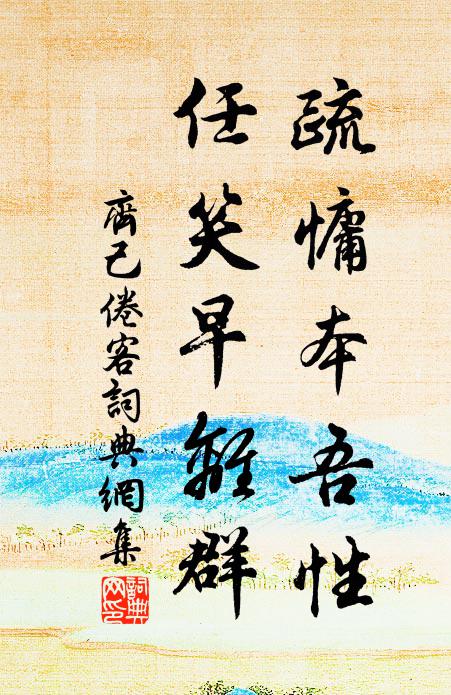 疏慵本吾性
任笑早離群
齊己倦客詞典網集
詞典